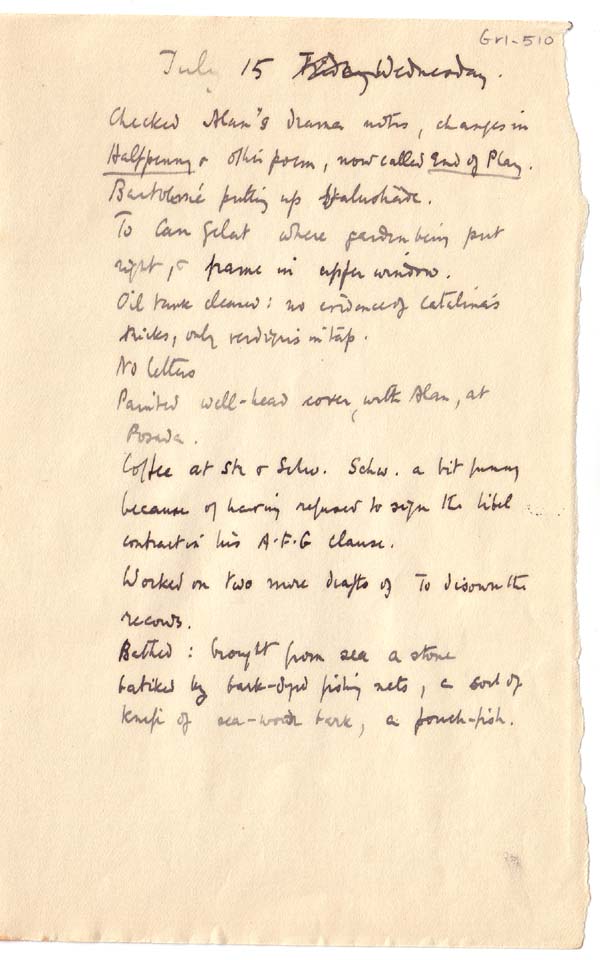 Gr1-510
July 15 Wednesday.
Checked Alan's drama notes, changes in
Halfpenny & other poem, now called End of Play.
Bartolomé putting up
To Can Gelat where garden being put
right, & frame in upper window.
Oil tank cleaned: no evidence of Catalina's
tricks, only verdigris in tap.
No letters
Painted well-head cover, with Alan, at
Posada.
Coffee at Sch. Schw. a bit funny
because of having refused to sign the libel
contract in his A.F.G clause.
Worked on two more drafts of To disown the
records.
Bathed: brought from sea a stone
batiked by bark-dyed fishing nets, a sort of
knife of sea-worn bark, a pouch-fish.